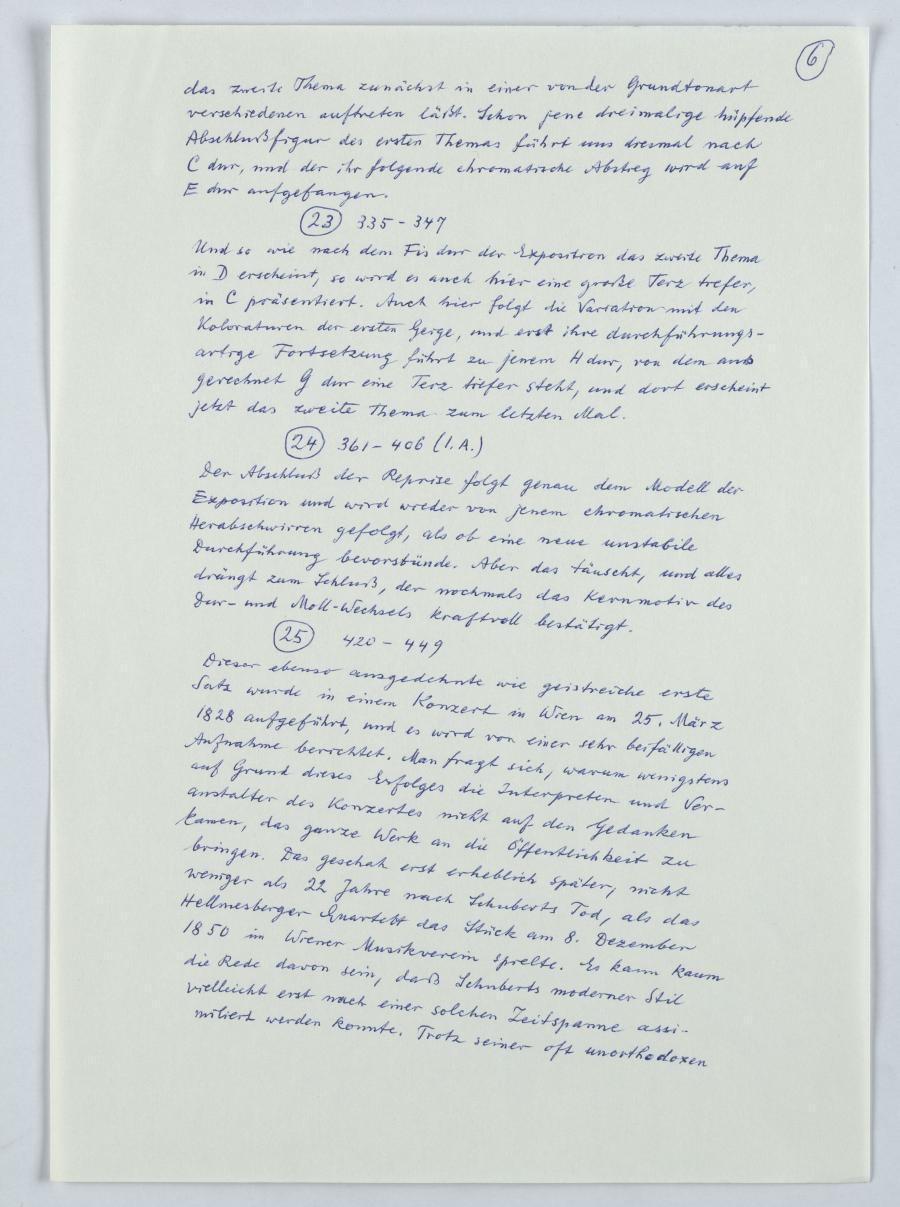 6
das zweite Thema zunächst in einer von der Grundtonart
verschiedenen auftreten läßt. Schon jene dreimalige hüpfende
Abschlußfigur des ersten Themas führt uns diesmal nach
C dur, und der ihr folgende chromatische Abstieg wird auf
E dur aufgefangen.
23 335 - 347
Und so wie nach dem Fis dur der Exposition das zweite Thema
in D erscheint, so wird es auch hier eine große Terz tiefer,
in C präsentiert. Auch hier folgt die Variation mit den
Koloraturen der ersten Geige, und erst ihre durchführungs-
artige Fortsetzung führt zu jenem H dur, von dem aus
gerechnet G dur eine Terz tiefer steht, und dort erscheint
jetzt das zweite Thema zum letzten Mal.
24 361 - 406 (I.A.)
Der Abschluß der Reprise folgt genau dem Modell der
Exposition und wird wieder von jenem chromatischen
Herabschwirren gefolgt, als ob eine neue unstabile
Durchführung bevorstünde. Aber das täuscht, und alles
drängt zum Schluß, der nochmals das Kernmotiv des
Dur- und Moll-Wechsels kraftvoll bestätigt.
25 420 - 449
Dieser ebenso ausgedehnte wie geistreiche erste
Satz wurde in einem Konzert in Wien am 25. März
1828 aufgeführt, und es wird von einer sehr beifälligen
Aufnahme berichtet. Man fragt sich, warum wenigstens
auf Grund dieses Erfolges die Interpreten und Ver-
anstalter des Konzertes nicht auf den Gedanken
kamen, das ganze Werk an die Öffentlichkeit zu
bringen. Das geschah erst erheblich später, nicht
weniger als 22 Jahre nach Schuberts Tod, als das
Hellmesberger Quartett das Stück am 8. Dezember
1850 im Wiener Musikverein spielte. Es kann kaum
die Rede davon sein, daß Schuberts moderner Stil
vielleicht erst nach einer solchen Zeitspanne assi-
miliert werden konnte. Trotz seiner oft unorthodoxen